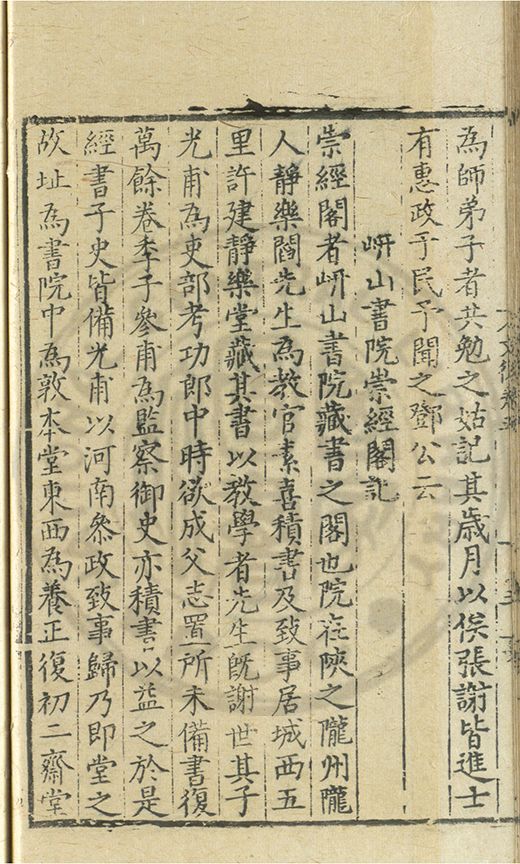 為師弟子者共勉之姑記其歲月以俟張謝皆進士
有惠政于民予聞之鄧公云
岍山書院崇經閣記
崇經閣者岍山書院藏書之閣也院在陝之隴州隴
人靜樂閻先生為教官素喜積書及致事居城西五
里許建靜樂堂藏其書以教學者先生既謝世其子
光甫為吏部考功郎中時欲成父志置所未備書復
萬餘卷季子參甫為監察御史亦積書以益之於是
經書子史皆備光甫以河南叅政致事歸乃即堂之
故址為書院中為敦本堂東西為養正復初二齋堂